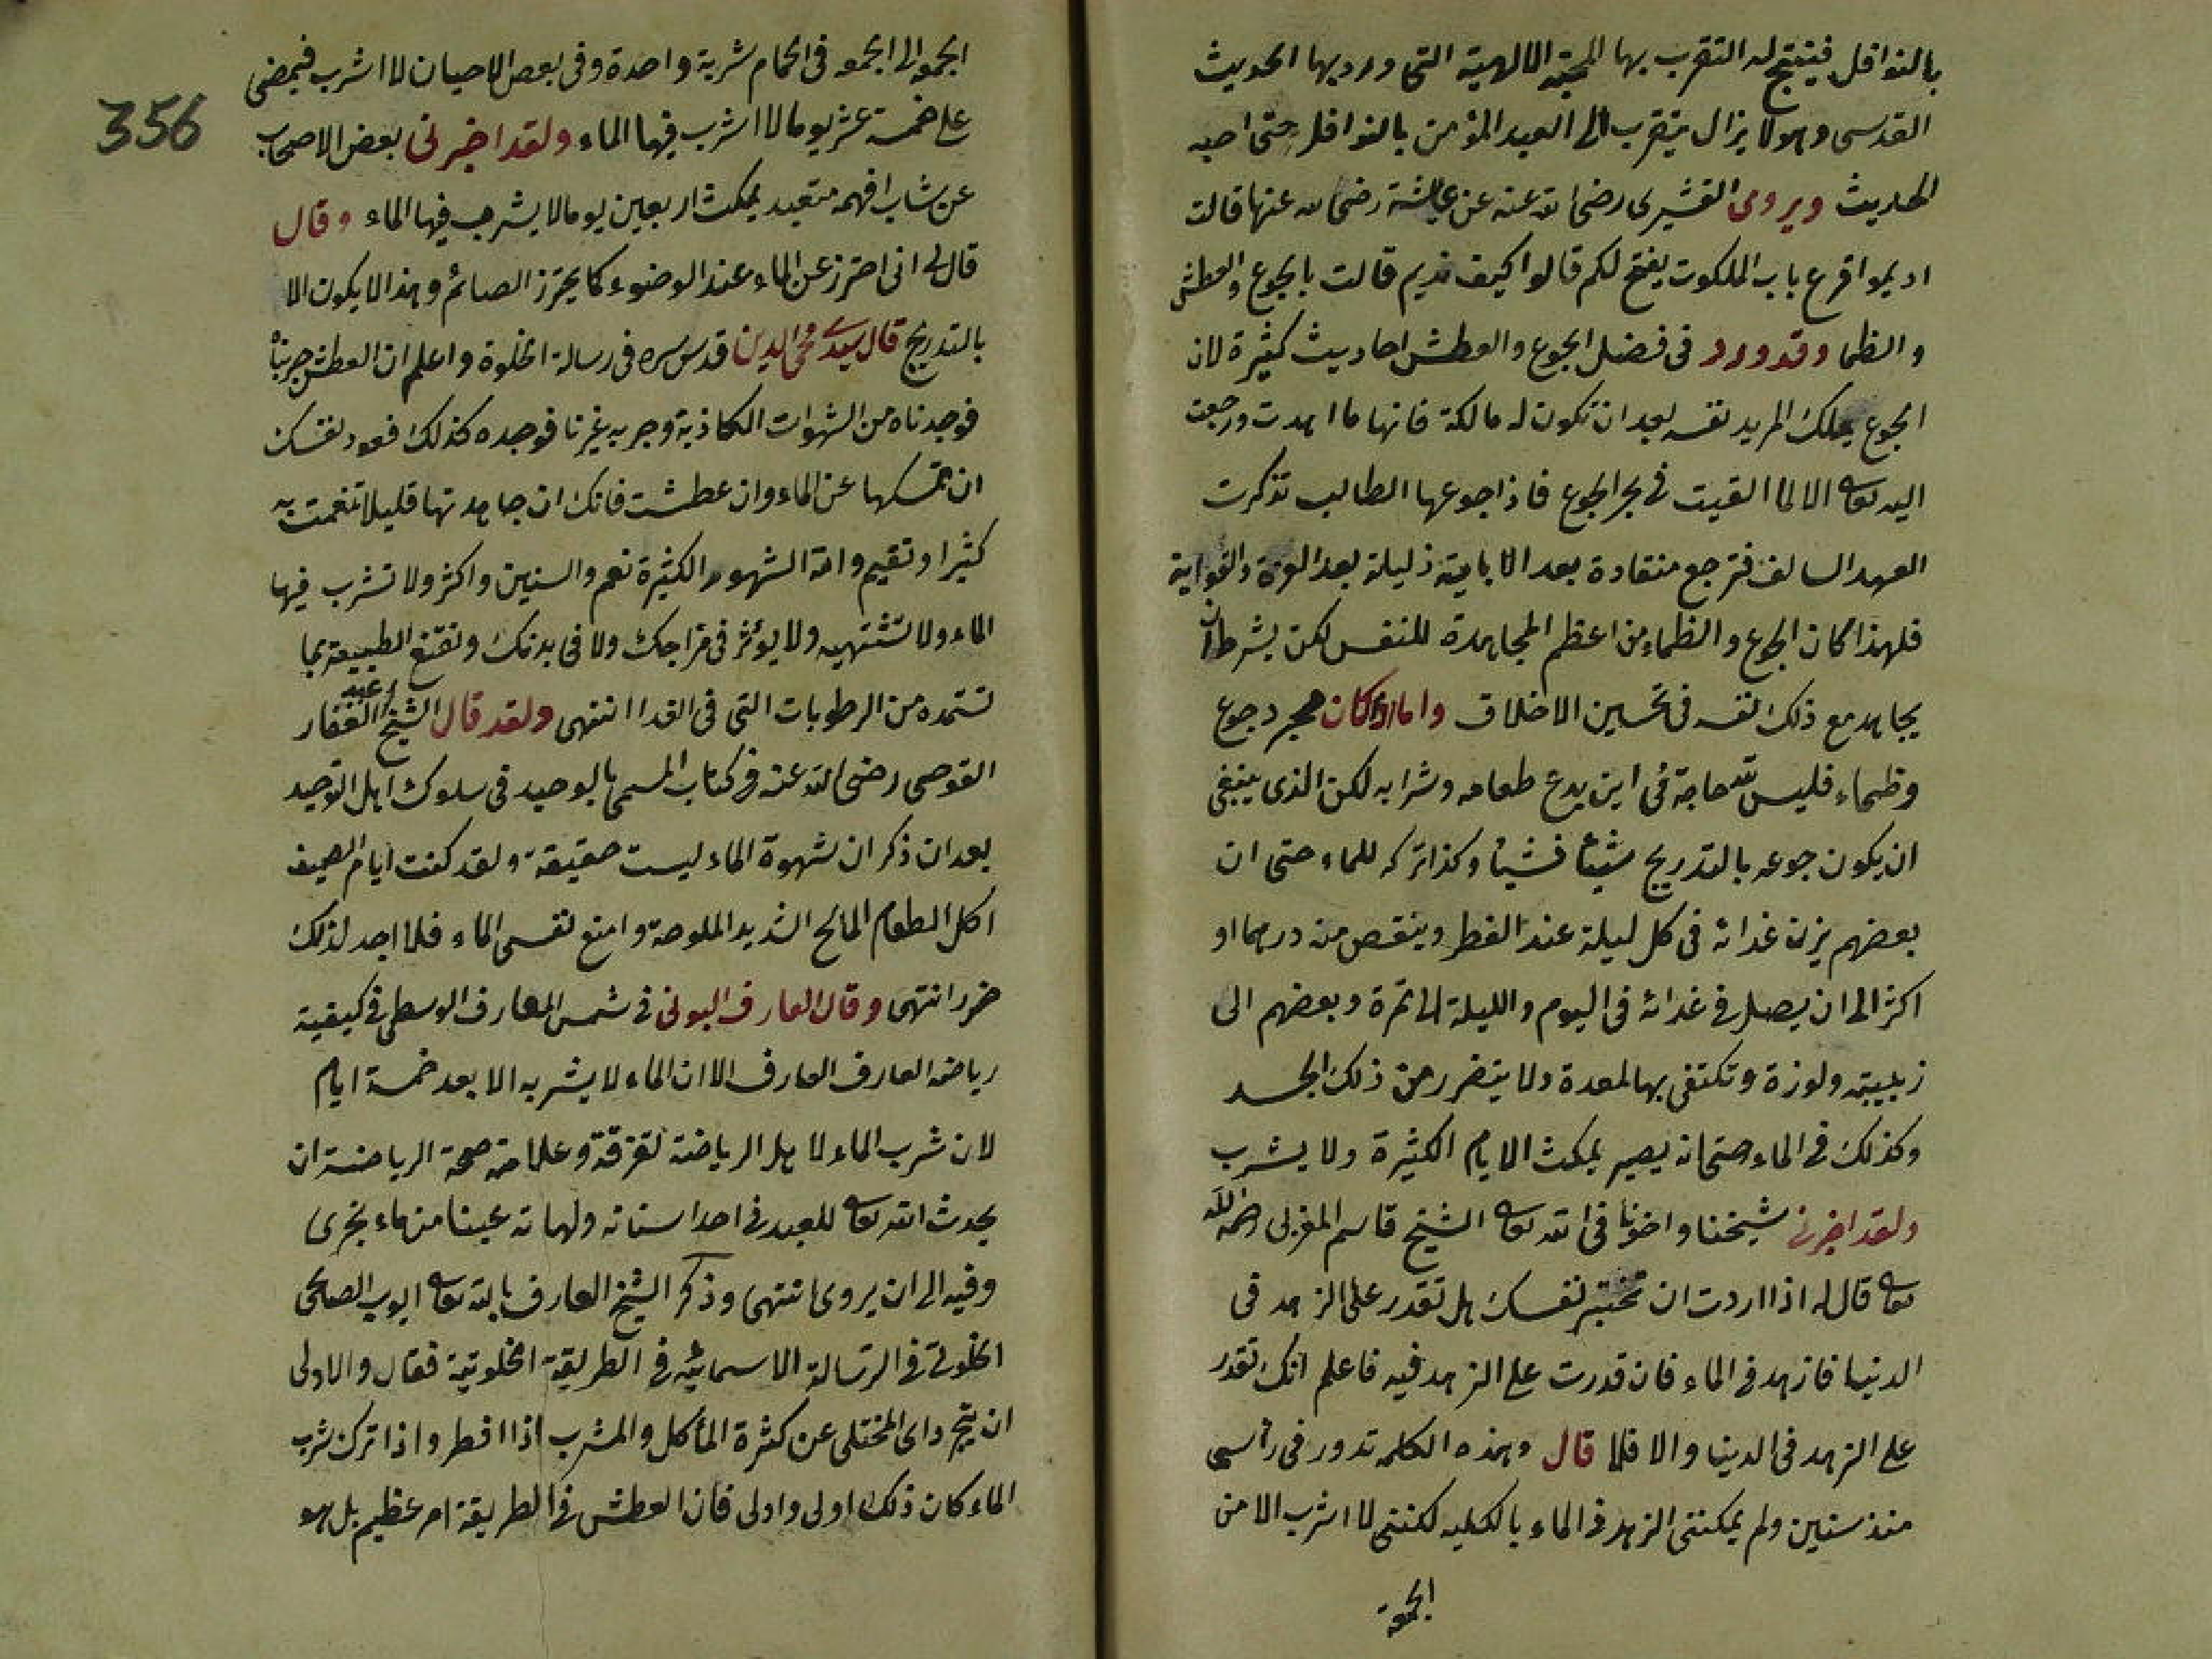 بالنوافل فينتج له التقرب بها المحبة الالهية التى ورد بها الحديث
القدسى وهو لا يزال يتقرب الى العبد المؤمن بالنوافل حتى احبه
الحديث ويروى القشيرى رضى الله عنه عن عايشة رضى الله عنها قالت
اديموا قرع باب الملكوت يفتح لكم قالوا كيف نديم قالت بالجوع والعطش
والظما وقد ورد فى فضل الجوع والعطش احاديث كثيرة لان
الجوع يملك المريد نفسه بعد ان تكون له مالكة فانها ما اهدت ورجعت
اليه تعالى الا لما القيت فى بحر الجوع فاذا جوعها الطالب تذكرت
العهد السالف فترجع منقادة بعد الاباية ذليلة بعد العزة
فلهذا كان الجوع والظماء من اعظم المجاهدة للنفس لكن بشرط ان
يجاهد مع ذلك نفسه فى تحسين الاخلاق واما اذا كان مجرد جوع
وظماء فليس لله حاجة فى اين يدع طعامه وشرابه لكن الذى ينبغى
ان يكون جوعه بالتدريج شيئا فشيئا وكذا تركه للماء حتى ان
بعضهم يزن غدائه فى كل ليلة عند الفطر وينقص منه درهما او
اكثر الى ان يصل فى غدائه فى اليوم والليلة الى تمرة وبعضهم الى
زبيبة ولوزة وتكتفى بها المعدة ولا يتضرر من ذلك الجسد
وكذلك فى الماء حتى انه يصير يمكث الايام الكثيرة ولا يشرب
ولقد اخبرنى شيخنا واخونا فى الله تعالى الشيخ قاسم المغربى رحمه الله
تعالى قال له اذا اردت ان تختبر نفسك هل تقدر على الزهد فى
الدنيا فازهد فى الماء فان قدرت على الزهد فيه فاعلم انك تقدر
على الزهد فى الدنيا والا فلا قال وهذه الكلمه تدور فى راسى
منذ سنين ولم يمكننى الزهد فى الماء بالكليه لكننى لا اشرب الا من
الجمعة
356
الجمعه الى الجمعه فى الحمام شربة واحدة وفى بعض الاحيان لا اشرب فيمضى
على خمسة عشر يوما لا اشرب فيها الماء ولقد اخبرنى بعض الاصحاب
عن شاب متعبد يمكث اربعين يوما لا يشرب فيها الماء وقال
قال لى انى احترز عن الماء عند الوضوء كما يحترز الصائم وهذا لا يكون الا
بالتدريج قال سيدى محى الدين قدس سره فى رسالة الخلوة واعلم ان العطش جربناه
فوجدناه من الشهوات الكاذبة وجربه غيرنا فوجده كذلك فعود نفسك
ان تمسكها عن الماء وان عطشت فانك ان جاهدتها قليلا تنعمت به
كثيرا وتقيم والله الشهور الكثيرة نعم والسنين واكثر ولا تشرب فيها
الماء ولا تشتهيه ولا يوثر فى مزاجك ولا فى بدنك وتقنع الطبيعة بما
تستمده من الرطوبات التى فى الغدا انتهى ولقد قال الشيخ عبد الغفار
القوصى رضى الله عنه فى كتاب المسمى بالوحيد فى سلوك اهل التوحيد
بعد ان ذكر ان شهوة الماء ليست حقيقة ولقد كنت ايام الصيف
اكل الطعام المالح الشديد الملوحة وامنع نفسى الماء فلا اجد لذلك
ضررا انتهى وقال العارف البونى فى شمس المعارف الوسطى فى كيفية
رياضة العارف العارف الا ان الماء لا يشربه الا بعد خمسة ايام
لان شرب الماء لاهل الرياضة تفرقة وعلامة صحة الرياضة ان
يحدث الله تعالى للعبد فى احد اسنانه ولهاته عينا من ماء تجرى
وفيه الى ان يروى انتهى وذكر الشيخ العارف بالله تعالى ايوب الصالحى
الخلوتى فى الرسالة الاسمائية فى الطريقة الخلوتية فقال والاولى
ان يتجرد اى المختلى عن كثرة المأكل والمشرب اذا افطر واذا ترك شرب
الماء كان ذلك اولى واولى فان العطش فى الطريقة امر عظيم بل هو